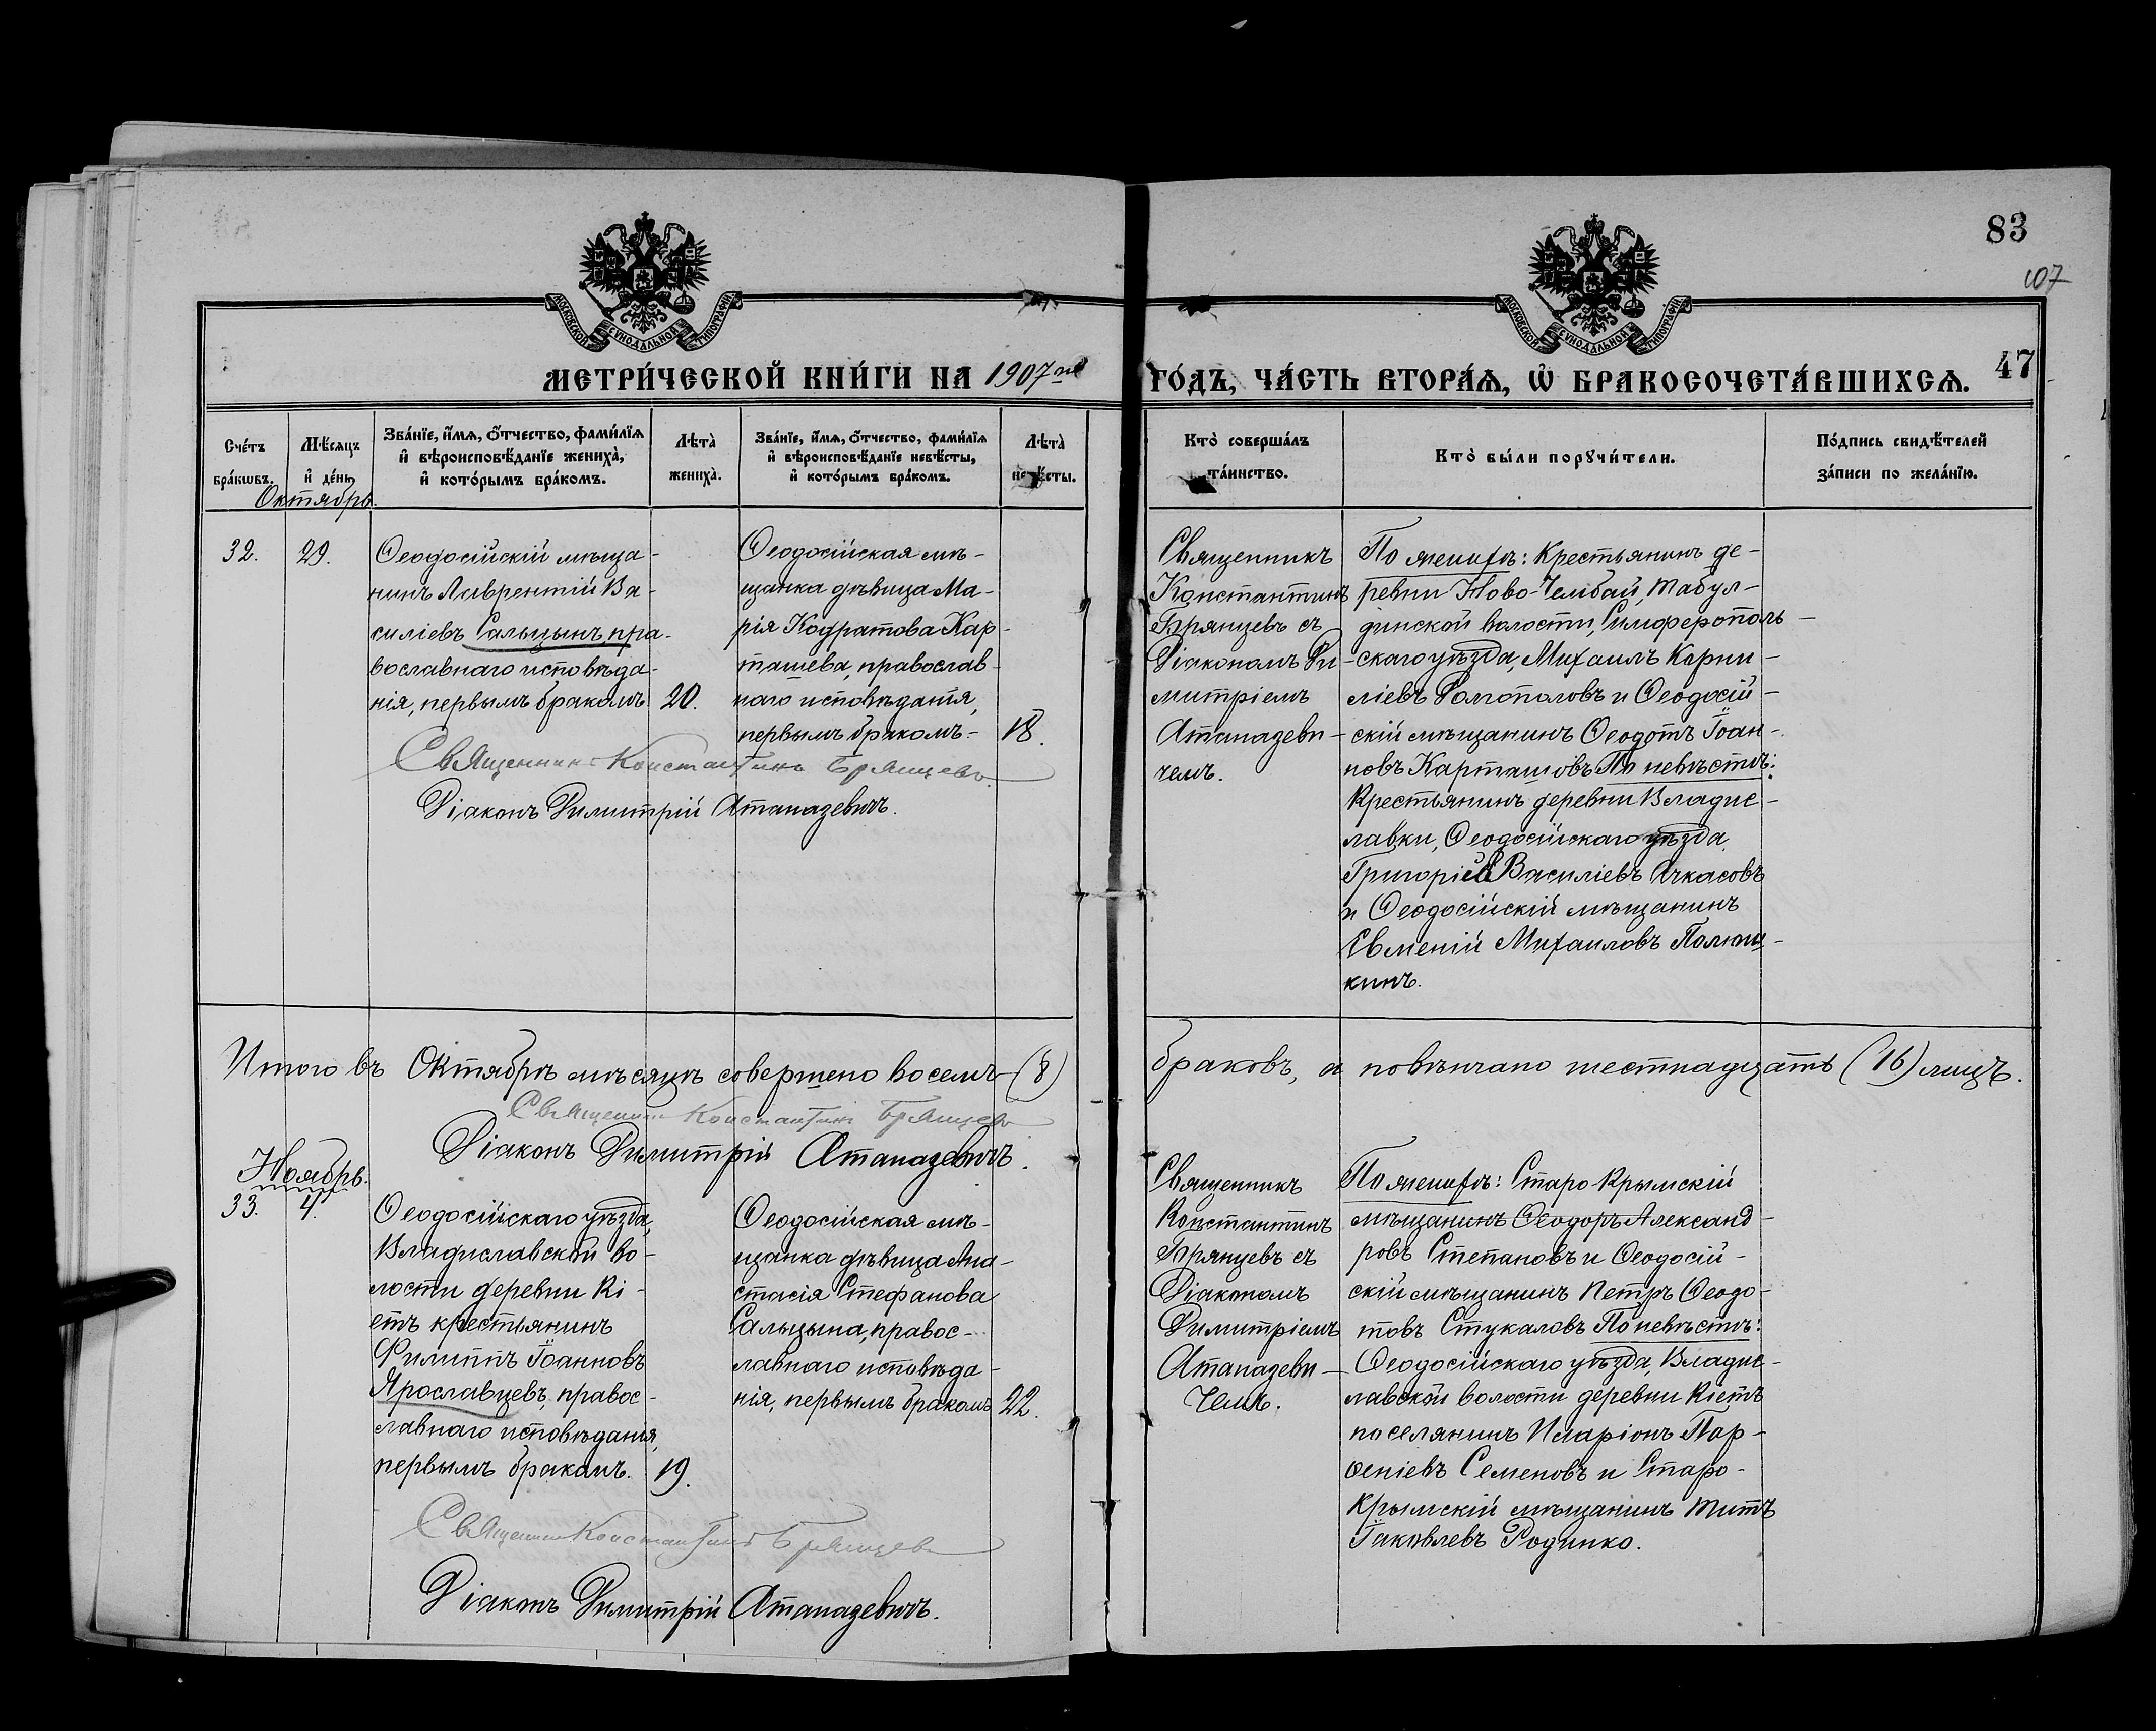 83
107
МОСКОВСКОЙ СѴНОДАЛЬНОЙ ТИПОГРАФІИ
МОСКОВСКОЙ СѴНОДАЛЬНОЙ ТИПОГРАФІИ
МЕТРИ́ЧЕСКОЙ КНИ́ГИ НА 1907 го́дъ, ча́сть втора́ѧ, ѡ҆ бракосочета́вшихсѧ. 47
Сче́тъ бра́кѡвъ.
Мѣ́сяцъ и҆ де́нь.
Зва́нїе, и҆́мѧ, ѻ҆́тчество, фами́лїѧ и҆ вѣроисповѣ́данїе жениха̀, и҆ кото́рымъ бра́комъ.
Лѣта̀ жениха̀.
Зва́нїе, и҆́мѧ, ѻ҆́тчество, фами́лїѧ и҆ вѣроисповѣ́данїе невѣ́сты, и҆ кото́рымъ бра́комъ.
Лѣта̀ невѣ́сты.
Кто̀ соверша́лъ та́инство.
Кто̀ бы́ли порꙋчи́тели.
По́дпись свидѣ́телей за́писи по жела́нїю.
Октябрь.
32.
29.
Ѳеодосійскій мѣща-
нинъ Лаврентій Ва-
силіевъ Сальцынъ, пра-
вославнаго исповѣда-
нія, первымъ бракомъ
20.
Ѳеодосійская мѣ-
щанка дѣвица Ма-
рія Кодратова Кар-
ташева, православ-
наго исповѣданія,
первымъ бракомъ-
18.
Священникъ
Константинъ
Брянцевъ съ
Діакономъ Ди-
митріемъ
Атаназеви-
чемъ.
По женихѣ: Крестьянинъ де-
ревни Ново-Чембай, Табул-
динской волости, Симферополь-
скаго уѣзда, Михаилъ Корни-
ліевъ Золотоловъ и Ѳеодосій-
скій мѣщанинъ Ѳеодотъ Іоан-
новъ Карташовъ По невѣстѣ:
Крестьянинъ деревни Владис-
лавки, Ѳеодосійскаго уѣзда,
Григорій Василіевъ Ачкасовъ
и Ѳеодосійскій мѣщанинъ
Евмений Михаиловъ Полюш-
кинъ.
Священникъ Константинъ Брянцевъ
Діаконъ Димитрій Атаназевичъ.
Итого въ Октябрѣ мѣсяцѣ совершено восемь (8) браковъ, а повѣнчано шестнадцать (16) лицъ.
Священникъ Константинъ Брянцевъ
Діаконъ Димитрій Атаназевичъ.
Ноябрь.
33.
4.
Ѳеодосійскаго уѣзда,
Владиславской во-
лости деревни Кі-
етъ крестьянинъ
Филиппъ Іоанновъ
Ярославцевъ, правос-
лавнаго исповѣданія,
первымъ бракомъ.
19.
Ѳеодосійская мѣ-
щанка дѣвица Ана-
стасія Стефанова
Сальцына, правос-
лавнаго исповѣда-
нія, первымъ бракомъ
22.
Священникъ
Константинъ
Брянцевъ съ
Діакономъ
Димитріемъ
Атаназеви-
чемъ.
По женихѣ: Старо-Крымскій
мѣщанинъ Ѳеодоръ Александ-
ровъ Степановъ и Ѳеодосій-
скій мѣщанинъ Петръ Ѳеодо-
товъ Стукаловъ По невѣстѣ:
Ѳеодосійскаго уѣзда, Владис-
лавской волости деревни Кіетъ
поселянинъ Иларіонъ Пар-
ѳеніевъ Семеновъ и Старо-
Крымскій мѣщанинъ Титъ
Іаковлевъ Родинко.
Священникъ Константинъ Брянцевъ
Діаконъ Димитрій Атаназевичъ.